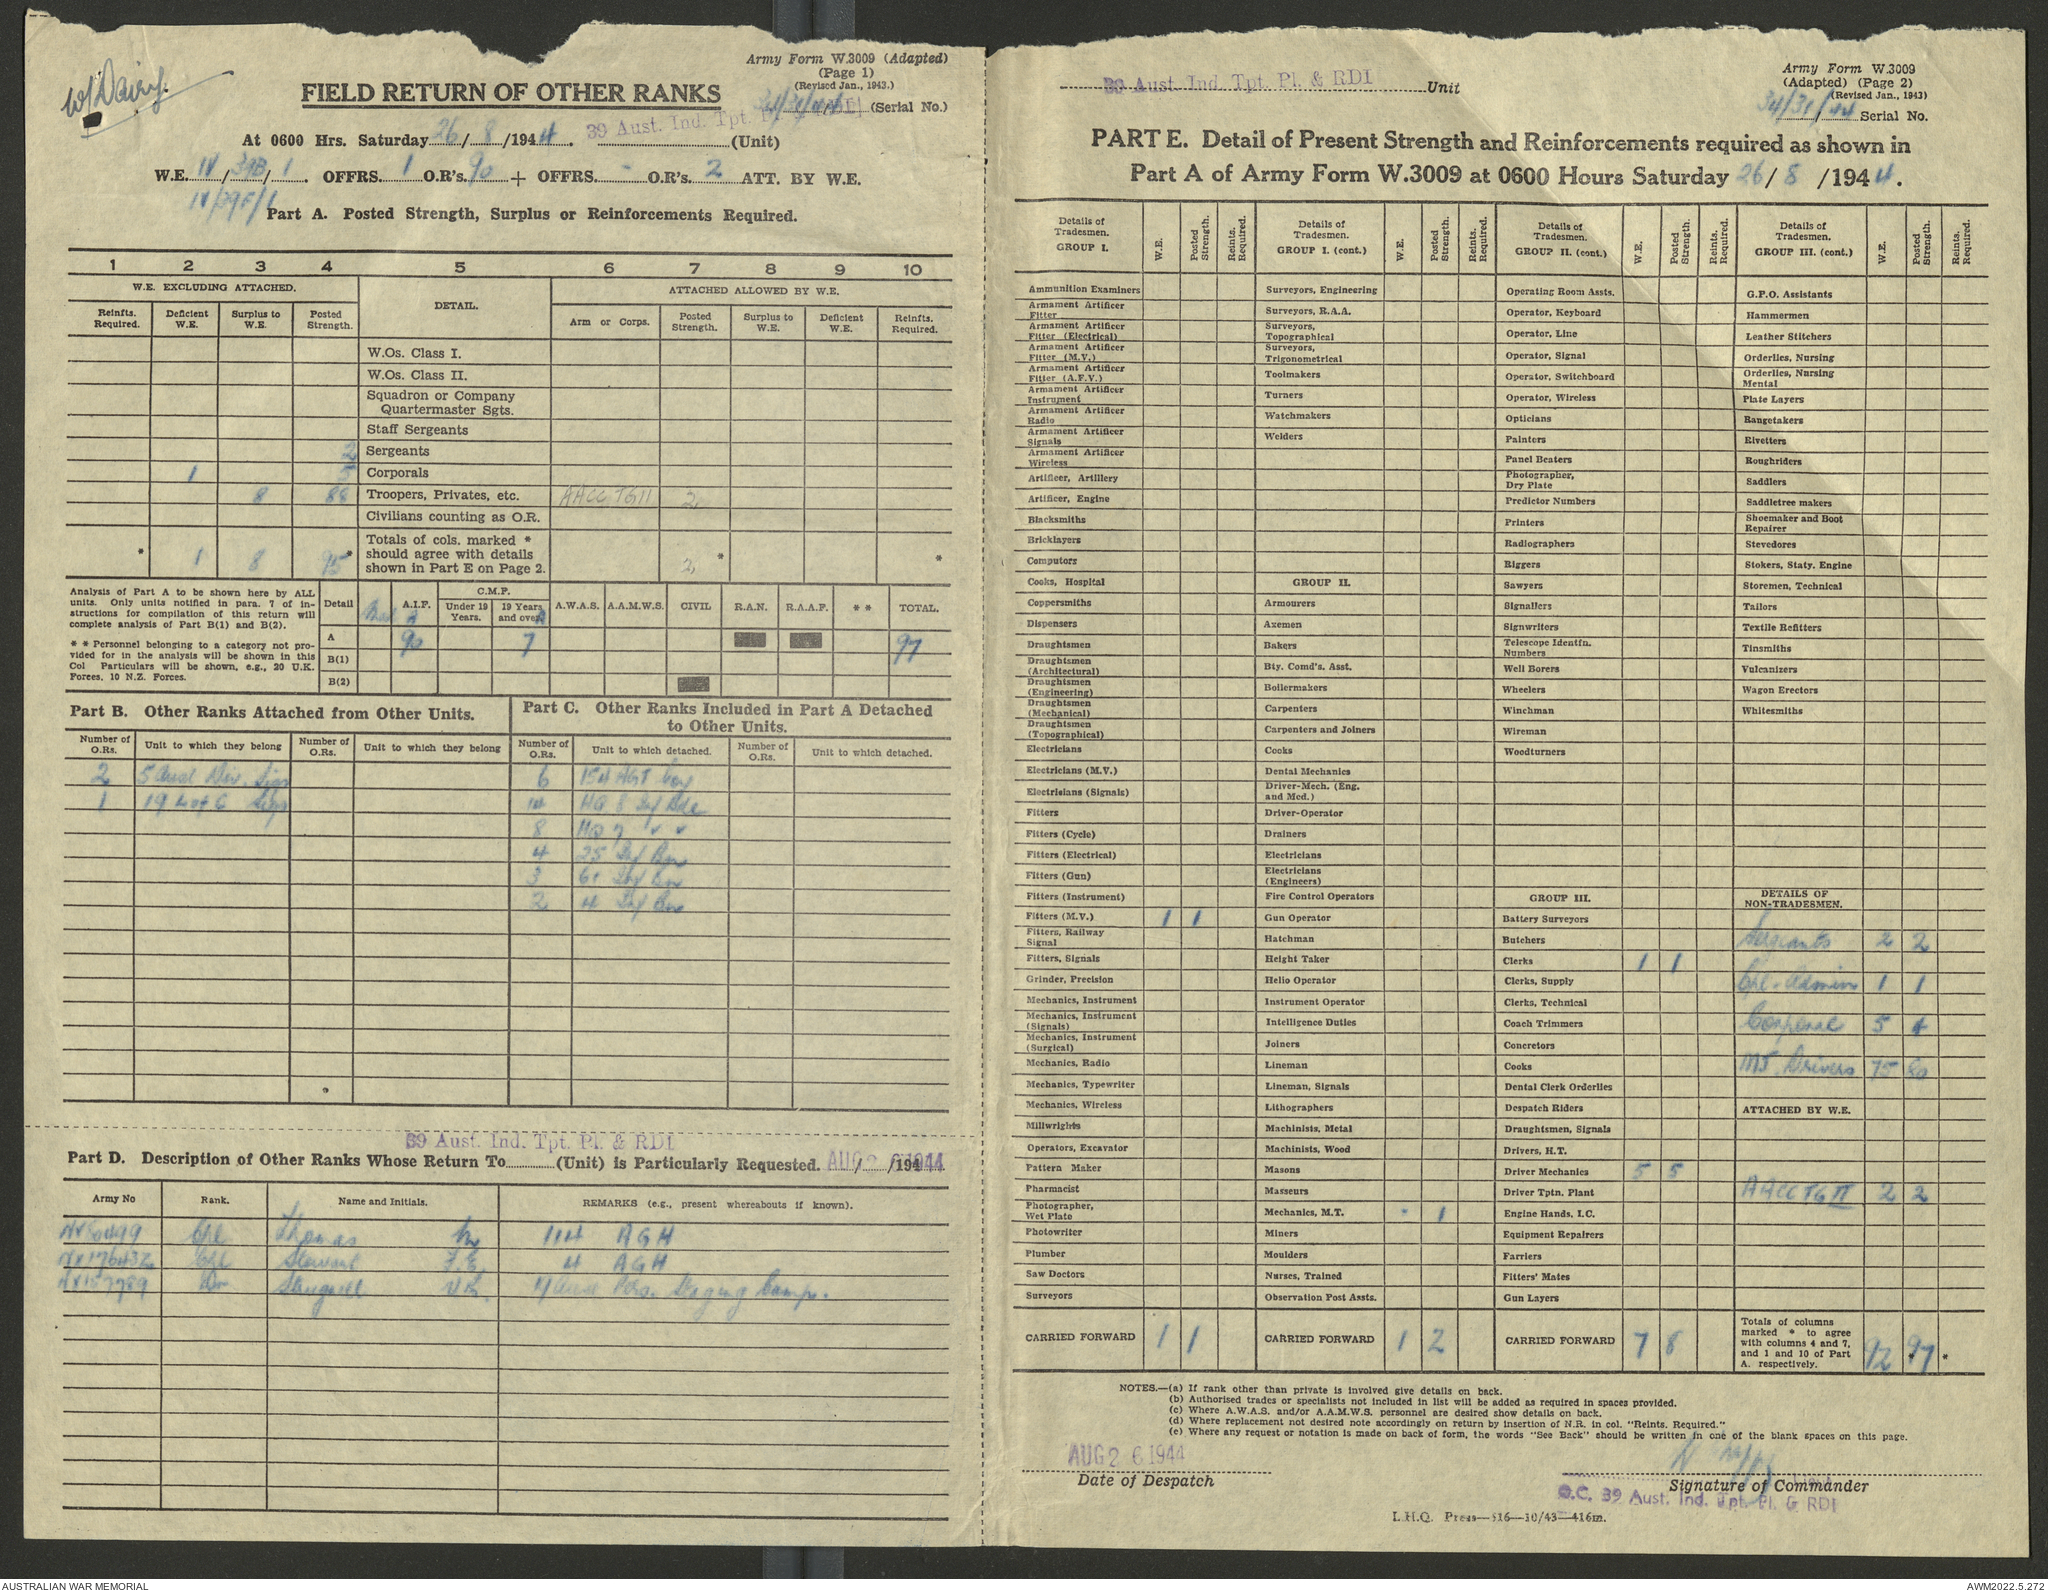 W/Dairy.
Army Form W.3009 (Adapted)
(Page 1)
(Revised Jan., 1943.)
FIELD RETURN OF OTHER RANKS
34/31/44 (Serial No.)
39 Aust. Ind. Tpt. Pl. & RDI
At 0600 Hrs. Saturday 26/8/1944. (Unit)
W.E. IV/39B/1. OFFRS. 1 O.R's. 90 + OFFRS. - O.R's. 2 ATT. BY W.E.
IV/39F/1
Part A. Posted Strength, Surplus or Reinforcements Required.
1 2 3 4 5 6 7 8 9 10
W.E. EXCLUDING ATTACHED. DETAIL. ATTACHED ALLOWED BY W.E.
Reinfts. Required. Deficient W.E. Surplus to W.E. Posted Strength. Arm or Corps. Posted Strength. Surplus to W.E. Deficient W.E. Reinfts. Required.
W.Os. Class I.
W.Os. Class II.
Squadron or Company
Quartermaster Sgts.
Staff Sergeants
2 Sergeants
1 5 Corporals
8 88 Troopers, Privates, etc. AACC TG11 2
Civilians counting as O.R.
Totals of cols. marked *
should agree with details
shown in Part E on Page 2.
* 1 8 95* 2* *
Analysis of Part A to be shown here by ALL
units. Only units notified in para. 7 of in-
structions for compilation of this return will
complete analysis of Part B(1) and B(2).
* * Personnel belonging to a category not pro-
vided for in the analysis will be shown in this
Col Particulars will be shown, e.g., 20 U.K.
Forces, 10 N.Z. Forces.
Detail A.I.F. C.M.F. Under 19 Years. 19 Years and over A.W.A.S. A.A.M.W.S. CIVIL R.A.N. R.A.A.F. * * TOTAL.
A 90 7 97
B(1)
B(2)
Part B. Other Ranks Attached from Other Units.
Number of O.Rs. Unit to which they belong Number of O.Rs. Unit to which they belong
2 5 Aust Div. Sigs
1 19 L of C Sigs
Part C. Other Ranks Included in Part A Detached
to Other Units.
Number of O.Rs. Unit to which detached. Number of O.Rs. Unit to which detached.
6 154 AGT Coy
14 HQ 8 Inf Bde
8 HQ 7 " "
4 25 Inf Bn
3 61 Inf Bn
2 4 Inf Bn
39 Aust. Ind. Tpt. Pl. & RDI
Part D. Description of Other Ranks Whose Return To (Unit) is Particularly Requested. / /194
AUG 2 6 1944
Army No Rank. Name and Initials. REMARKS (e.g., present whereabouts if known).
Cpl Thomas 114 AGH
Cpl Stewart F.E. 4 AGH
Dvr 4 Aust Pers. Staging Camp.
39 Aust. Ind. Tpt. Pl. & RDI Unit
Army Form W.3009
(Adapted) (Page 2)
(Revised Jan., 1943)
34/31/44 Serial No.
PART E. Detail of Present Strength and Reinforcements required as shown in
Part A of Army Form W.3009 at 0600 Hours Saturday 26/8/1944.
Details of Tradesmen. GROUP I. W.E. Posted Strength. Reints. Required.
Ammunition Examiners
Armament Artificer Fitter
Armament Artificer Fitter (Electrical)
Armament Artificer Fitter (M.V.)
Armament Artificer Fitter (A.F.V.)
Armament Artificer Instrument
Armament Artificer Radio
Armament Artificer Signals
Armament Artificer Wireless
Artificer, Artillery
Artificer, Engine
Blacksmiths
Bricklayers
Computors
Cooks, Hospital
Coppersmiths
Dispensers
Draughtsmen
Draughtsmen (Architectural)
Draughtsmen (Engineering)
Draughtsmen (Mechanical)
Draughtsmen (Topographical)
Electricians
Electricians (M.V.)
Electricians (Signals)
Fitters
Fitters (Cycle)
Fitters (Electrical)
Fitters (Gun)
Fitters (Instrument)
Fitters (M.V.) 1 1
Fitters, Railway Signal
Fitters, Signals
Grinder, Precision
Mechanics, Instrument
Mechanics, Instrument (Signals)
Mechanics, Instrument (Surgical)
Mechanics, Radio
Mechanics, Typewriter
Mechanics, Wireless
Millwrights
Operators, Excavator
Pattern Maker
Pharmacist
Photographer, Wet Plate
Photowriter
Plumber
Saw Doctors
Surveyors
CARRIED FORWARD 1 1
Details of Tradesmen. GROUP I. (cont.) W.E. Posted Strength. Reints. Required.
Surveyors, Engineering
Surveyors, R.A.A.
Surveyors, Topographical
Surveyors, Trigonometrical
Toolmakers
Turners
Watchmakers
Welders
GROUP II.
Armourers
Axemen
Bakers
Bty. Comd's. Asst.
Boilermakers
Carpenters
Carpenters and Joiners
Cooks
Dental Mechanics
Driver-Mech. (Eng. and Med.)
Driver-Operator
Drainers
Electricians
Electricians (Engineers)
Fire Control Operators
Gun Operator
Hatchman
Height Taker
Helio Operator
Instrument Operator
Intelligence Duties
Joiners
Lineman
Lineman, Signals
Lithographers
Machinists, Metal
Machinists, Wood
Masons
Masseurs
Mechanics, M.T. - 1
Miners
Moulders
Nurses, Trained
Observation Post Assts.
CARRIED FORWARD 1 2
Details of Tradesmen. GROUP II. (cont.) W.E. Posted Strength. Reints. Required.
Operating Room Assts.
Operator, Keyboard
Operator, Line
Operator, Signal
Operator, Switchboard
Operator, Wireless
Opticians
Painters
Panel Beaters
Photographer, Dry Plate
Predictor Numbers
Printers
Radiographers
Riggers
Sawyers
Signallers
Signwriters
Telescope Identfn. Numbers
Well Borers
Wheelers
Winchman
Wireman
Woodturners
GROUP III.
Battery Surveyors
Butchers
Clerks 1 1
Clerks, Supply
Clerks, Technical
Coach Trimmers
Concretors
Cooks
Dental Clerk Orderlies
Despatch Riders
Draughtsmen, Signals
Drivers, H.T.
Driver Mechanics 5 5
Driver Tptn. Plant
Engine Hands, I.C.
Equipment Repairers
Farriers
Fitters' Mates
Gun Layers
CARRIED FORWARD 7 8
Details of Tradesmen. GROUP III. (cont.) W.E. Posted Strength. Reints. Required.
G.P.O. Assistants
Hammermen
Leather Stitchers
Orderlies, Nursing
Orderlies, Nursing Mental
Plate Layers
Rangetakers
Rivetters
Roughriders
Saddlers
Saddletree makers
Shoemaker and Boot Repairer
Stevedores
Stokers, Staty. Engine
Storemen, Technical
Tailors
Textile Refitters
Tinsmiths
Vulcanizers
Wagon Erectors
Whitesmiths
DETAILS OF NON-TRADESMEN.
Sergeants 2 2
Cpl - Admin 1 1
Corporal 5 4
MT. Drivers 75 80
ATTACHED BY W.E.
AACC TG II 2 2
Totals of columns marked * to agree with columns 4 and 7, and 1 and 10 of Part A. respectively. 92 *97 *
NOTES.—(a) If rank other than private is involved give details on back.
(b) Authorised trades or specialists not included in list will be added as required in spaces provided.
(c) Where A.W.A.S. and/or A.A.M.W.S. personnel are desired show details on back.
(d) Where replacement not desired note accordingly on return by insertion of N.R. in col. "Reints. Required."
(e) Where any request or notation is made on back of form, the words "See Back" should be written in one of the blank spaces on this page.
AUG 2 6 1944
Date of Despatch
Signature of Commander
O.C. 39 Aust. Ind. Tpt. Pl. & RDI
L.H.Q. Press—816—10/43—416m.
AUSTRALIAN WAR MEMORIAL
AWM2022.5.272